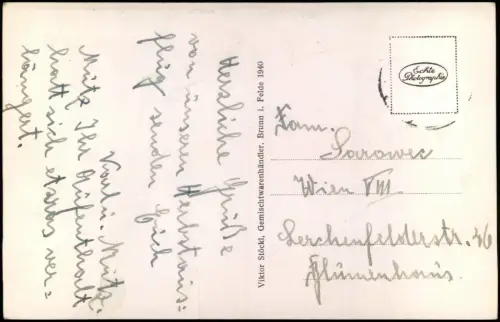 Herzliche Grüße
von unseren Herbstaus=
flug senden Euch
Mitzi Ihr Aufenthalt
hatt sich etwas ver=
längert.
Viktor Stöckl, Gemischtwarenhändler, Brunn i. Felde 1940
Echte
Photographie
Fam.
Sarowec
Wien VIII
Lerchenfelderstr. 36
Blumenhaus.